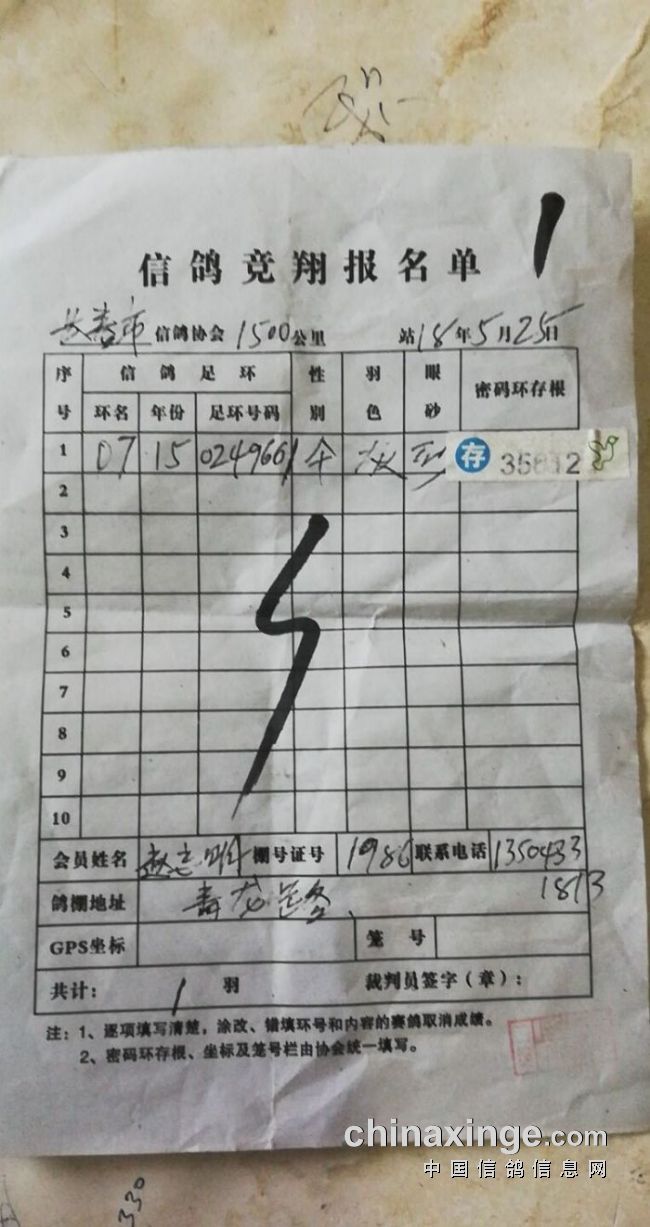 信鸽竞翔报名单
长春市信鸽协会1500公里 站18年5月25日
序号 信鸽足环 性别 羽色 眼砂 密码环存根
环名 年份 足环号码
1 07 15 0249661 存 35612
2
3
4
5
6
7
8
9
10
会员姓名 赵志明 棚号证号 1986 联系电话 1350433
1813
鸽棚地址 青龙路
GPS坐标 笼号
共计: 1 羽 裁判员签字(章):
注:1、逐项填写清楚,涂改、错填环号和内容的赛鸽取消成绩。
2、密码环存根、坐标及笼号栏由协会统一填写。
chinaxinge.com
中国信鸽信息网
330